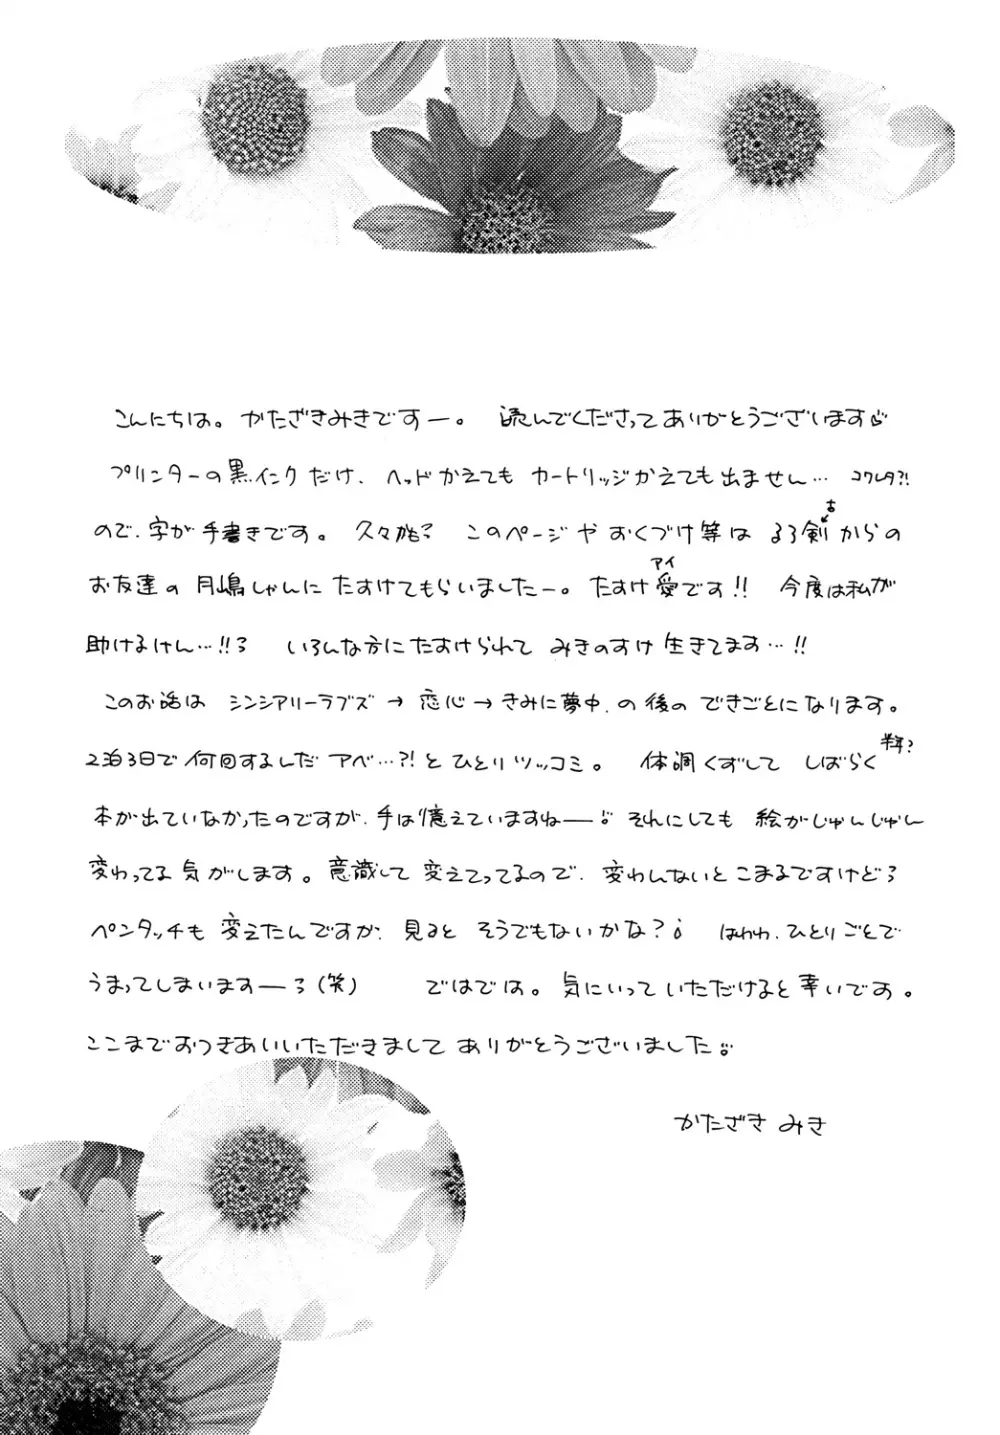 こんにちは。かたざきみきですー。 読んでくださってありがとうございます
プリンターの黒インクだけ、ヘッドかえても カートリッジかえても出ません… コワレタ?!
古
ので、字が手書きです。 久々 このページや おくづけ等は るろ剣からの
アイ
お友達の 月嶋しゃんに たすけてもらいましたー。たすけ愛です!! 今度は私が
助けるけん…!!? いろんな方にたすけられて みきのすけ 生きてます…!!
このお話は シンシアリーラブズ → 恋心 → きみに夢中. の後の できごとになります。
半年?
2泊3日で 何回するしだ アベ…?! と ひとりツッコミ。 体調くずして しばらく
本が出ていなかったのですが、手は憶えていますねー それにしても 絵がじゅんじゅん
変わってる気がします。意識して 変えてってるので、変わんないと こまるですけどろ
ペンタッチも 変えたんですが、見ると そうでもないかな? はわわ、ひとりごとで
うまってしまいますーろ(笑) ではでは。気にいって いただけると幸いです。
ここまでおつきあいいただきまして ありがとうございました
かたざき みき